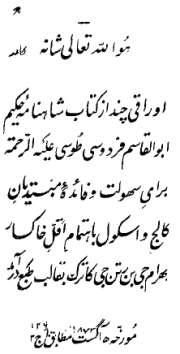 هوالله تعالی شانه
اوراقی چند از کتاب شاهنامه حکیم
ابوالقاسم فردوسی طوسی علیه الرحمة
برای سهولت و فائدهٔ مبتدیان
کالج و اسکول باهتمام اقل خاکسار
بهرام جی بن بهمن جی کاترک بقالب طبع درآمد
مورخه اگست مطابق